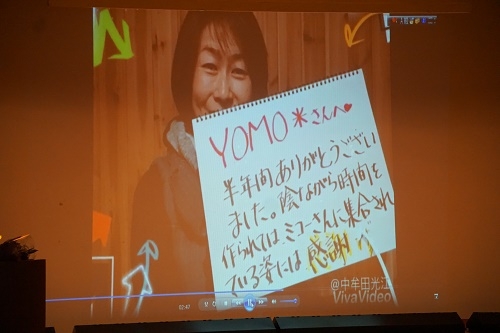 YOMO*さんへ♥
半年間ありがとうござい
ました。陰ながら時間を
作られては、ミコーさんに集合され
ている姿には感謝!!
@中牟田光江
VivaVideo
02:47